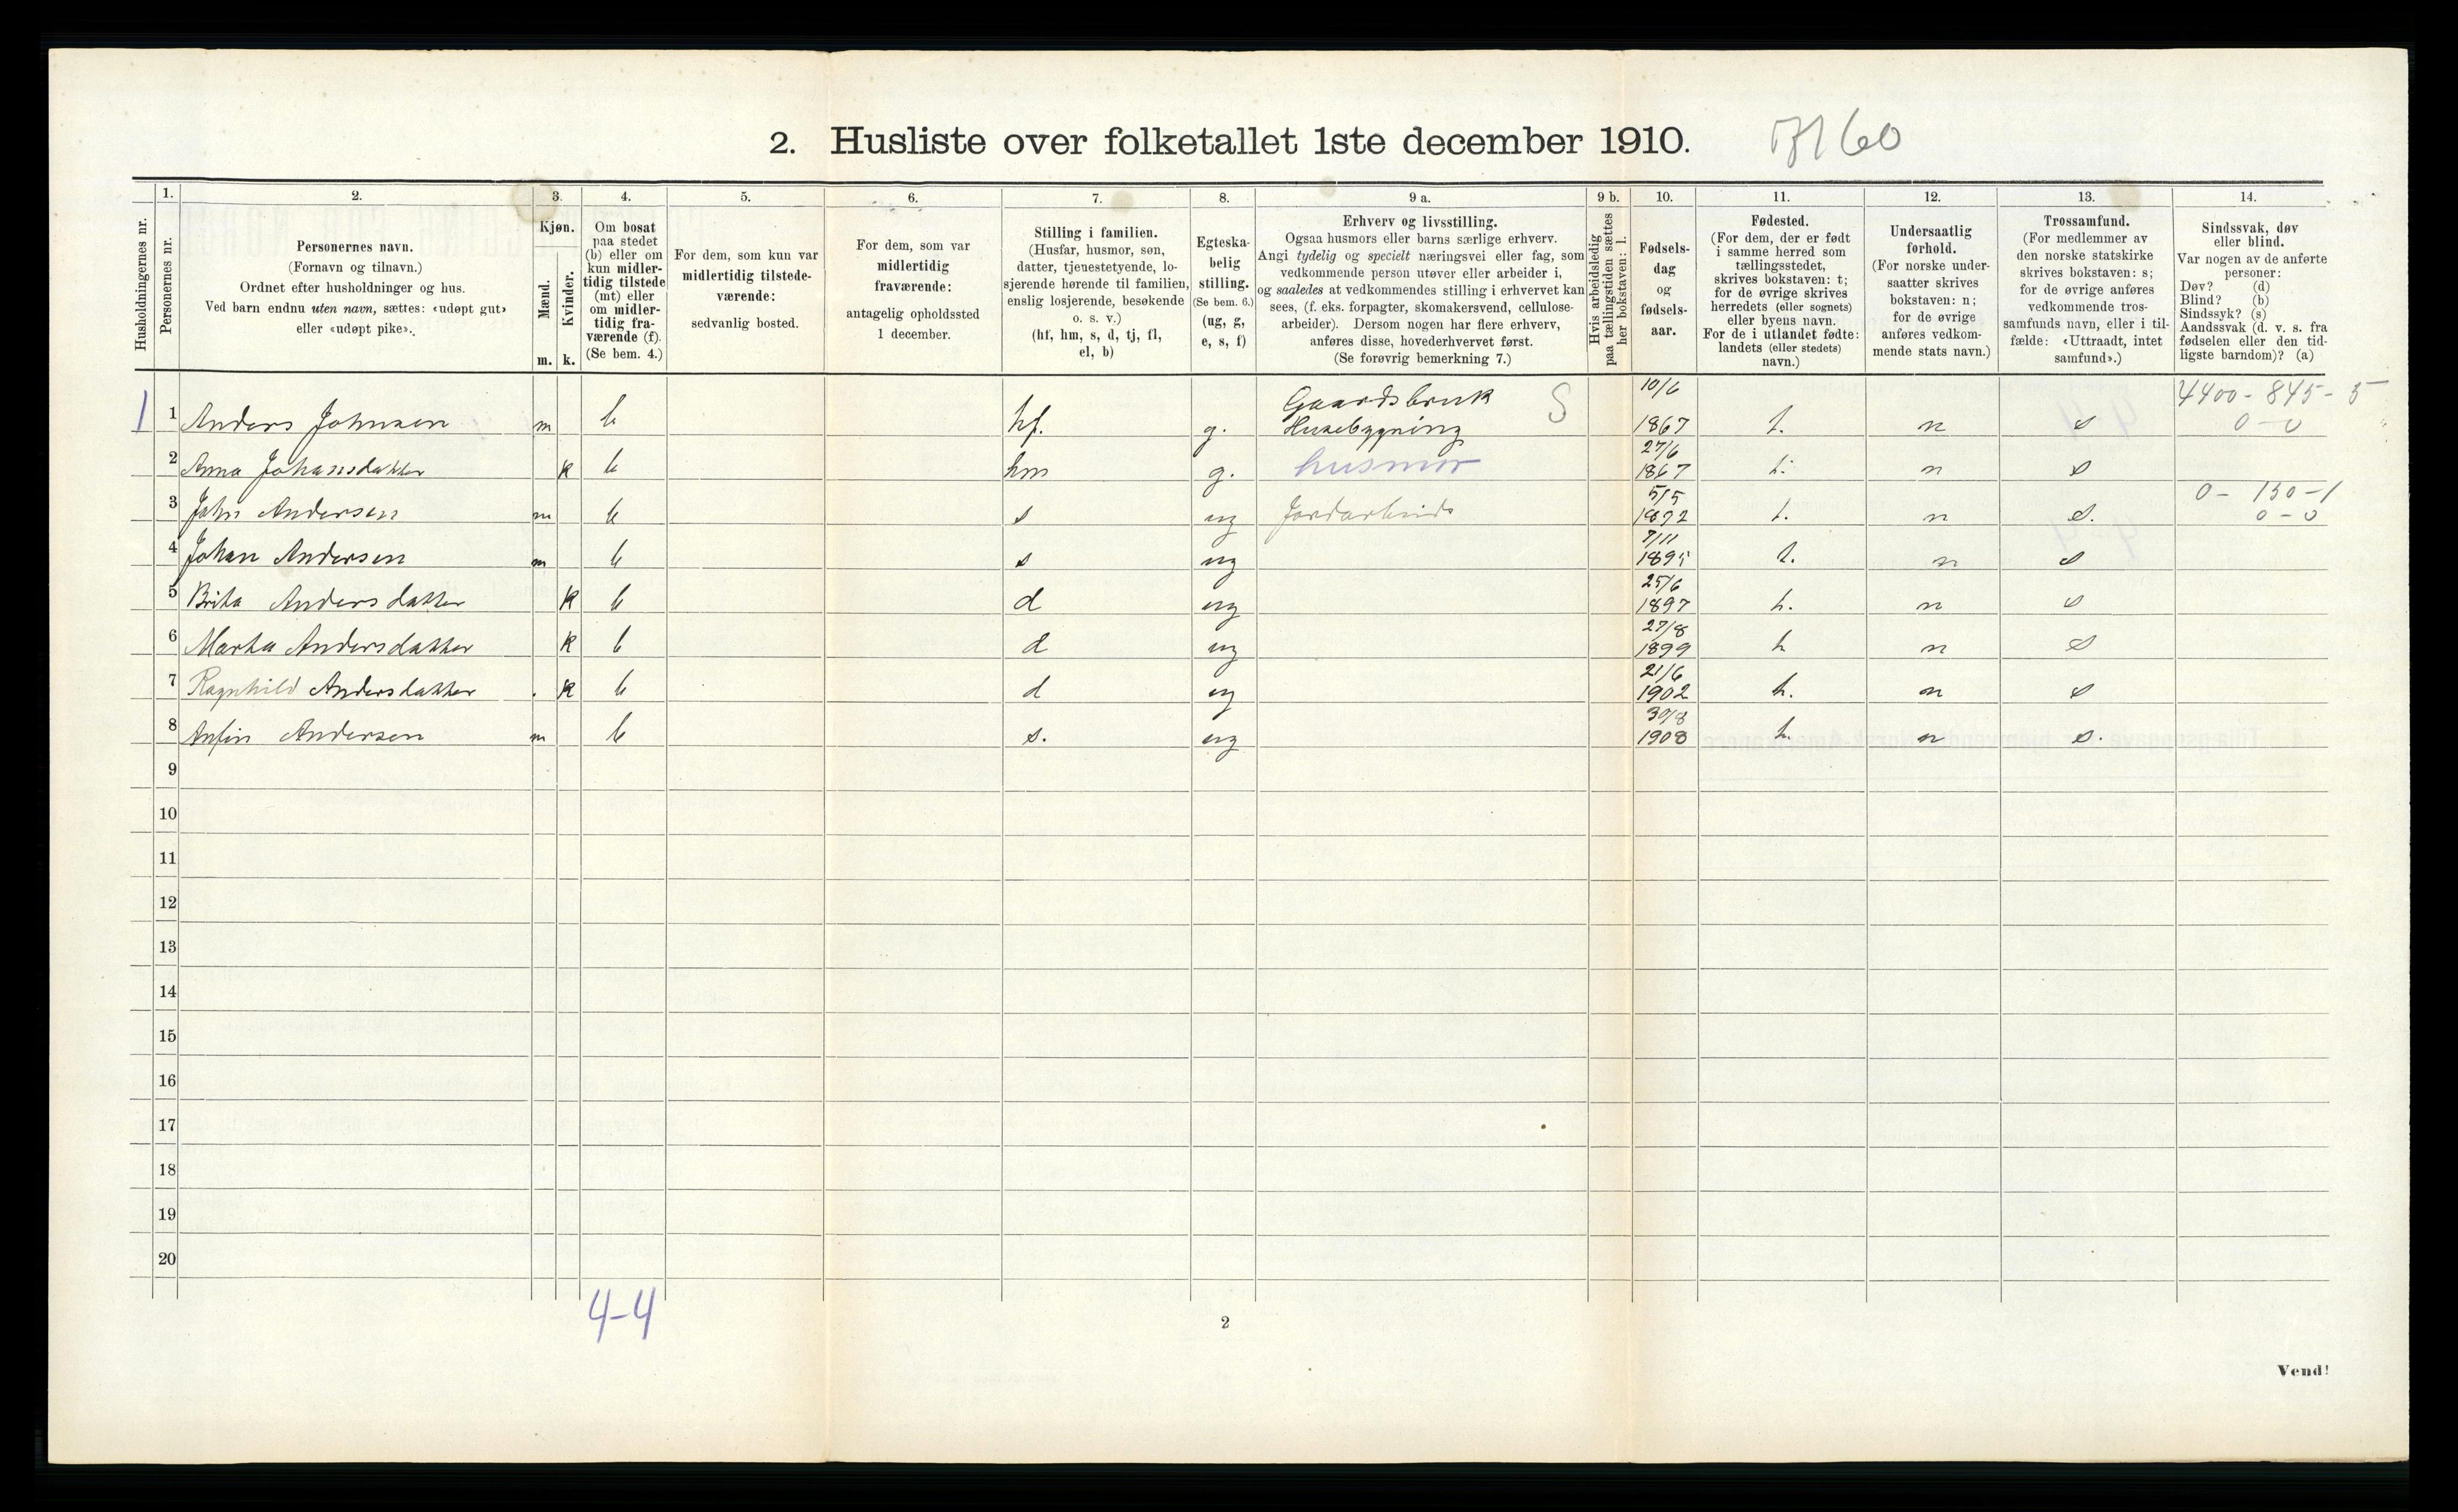 2. Husliste over folketallet 1ste december 1910.
60
1. 2. 3. 4. 5. 6. 7. 8. 9 a. 9 b. 10. 11. 12. 13. 14.
Husholdningernes nr.
Personernes nr.
Personernes navn.
(Fornavn og tilnavn.)
Ordnet efter husholdninger og hus.
Ved barn endnu uten navn, sættes: «udøpt gut»
eller «udøpt pike».
Kjøn.
Mænd.
Kvinder.
m. k.
Om bosat
paa stedet
(b) eller om
kun midler-
tidig tilstede
(mt) eller
om midler-
tidig fra-
værende (f).
(Se bem. 4.)
For dem, som kun var
midlertidig tilstede-
værende:
sedvanlig bosted.
For dem, som var
midlertidig
fraværende:
antagelig opholdssted
1 december.
Stilling i familien.
(Husfar, husmor, søn,
datter, tjenestetyende, lo-
sjerende hørende til familien,
enslig losjerende, besøkende
o. s. v.)
(hf, hm, s, d, tj, fl,
el, b)
Egteska-
belig
stilling.
(Se bem. 6.)
(ug, g,
e, s, f)
Erhverv og livsstilling.
Ogsaa husmors eller barns særlige erhverv.
Angi tydelig og specielt næringsvei eller fag, som
vedkommende person utøver eller arbeider i,
og saaledes at vedkommendes stilling i erhvervet kan
sees, (f. eks. forpagter, skomakersvend, cellulose-
arbeider). Dersom nogen har flere erhverv,
anføres disse, hovederhvervet først.
(Se forøvrig bemerkning 7.)
Hvis arbeidsledig
paa tællingstiden sættes
her bokstaven: l.
Fødsels-
dag
og
fødsels-
aar.
Fødested.
(For dem, der er født
i samme herred som
tællingsstedet,
skrives bokstaven: t;
for de øvrige skrives
herredets (eller sognets)
eller byens navn.
For de i utlandet fødte:
landets (eller stedets)
navn.)
Undersaatlig
forhold.
(For norske under-
saatter skrives
bokstaven: n;
for de øvrige
anføres vedkom-
mende stats navn.)
Trossamfund.
(For medlemmer av
den norske statskirke
skrives bokstaven: s;
for de øvrige anføres
vedkommende tros-
samfunds navn, eller i til-
fælde: «Uttraadt, intet
samfund».)
Sindssvak, døv
eller blind.
Var nogen av de anførte
personer:
Døv? (d)
Blind? (b)
Sindssyk? (s)
Aandssvak (d. v. s. fra
fødselen eller den tid-
ligste barndom)? (a)
Gaardsbruk S 10/6 4400 - 845 - 5
1 1 Anders Johnsen m b hf. g. Husebygning 1867 t. n s 0 - 0
27/6
2 Anna Johansdatter k b hm g. husmor 1867 t. n s
5/5 0 - 130 - 1
3 John Andersen m b s ug Jordarbeide 1892 t. n s. 0 - 0
7/11
4 Johan Andersen m b s ug 1895 t. n s
25/6
5 Brita Andersdatter k b d ug 1897 t. n s
27/8
6 Marta Andersdatter k b d ug 1899 t n s
21/6
7 Ragnhild Andersdatter . k b d ug 1902 t. n s
30/8
8 Anfin Andersen m b s. ug 1908 t. n s.
9
10
11
12
13
14
15
16
17
18
19
20
4-4
2
Vend!